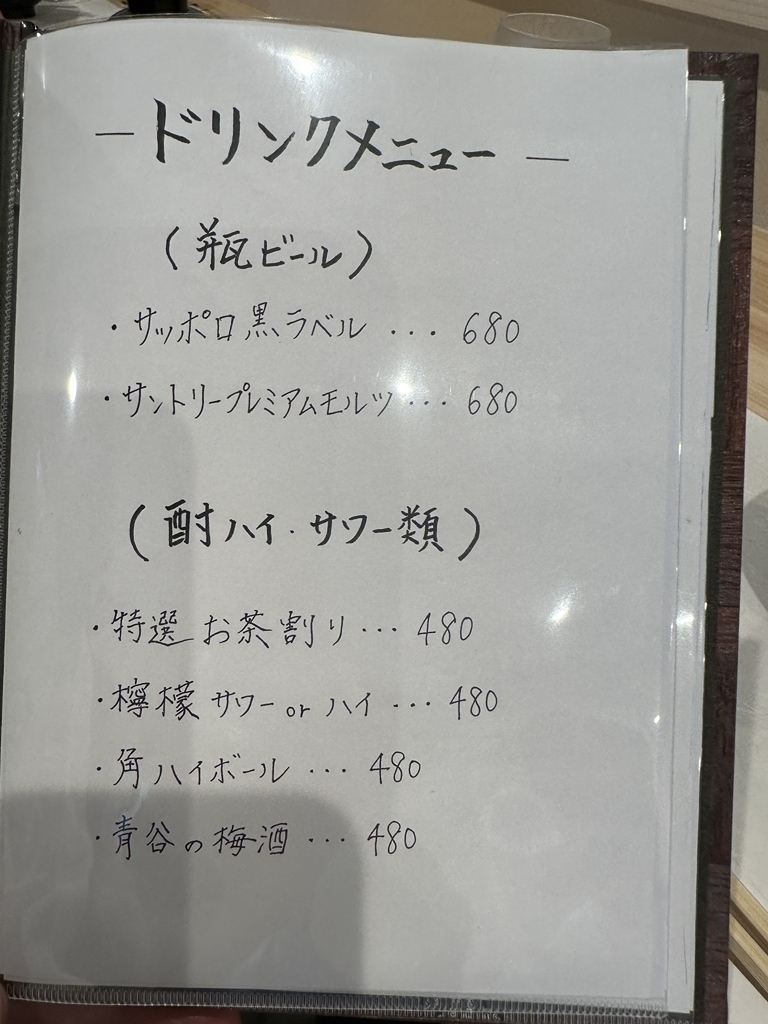 — ドリンクメニュー —
(瓶ビール)
・サッポロ黒ラベル ... 680
・サントリープレミアムモルツ ... 680
(酎ハイ・サワー類)
・特選お茶割り ... 480
・檸檬サワー or ハイ ... 480
・角ハイボール ... 480
・青谷の梅酒 ... 480